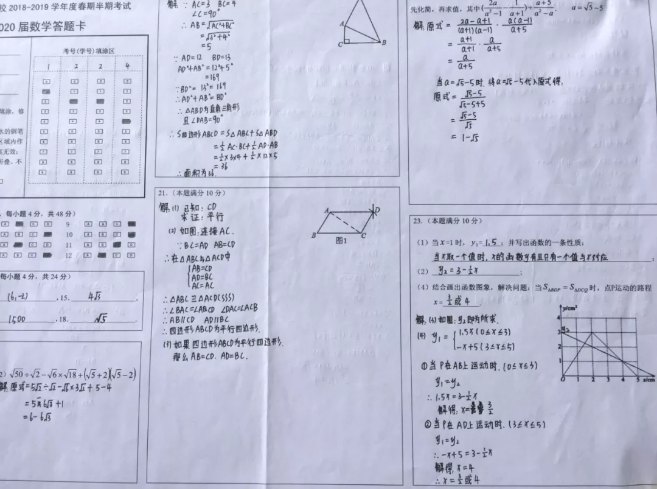 校 2018-2019 学年度春期半期考试
020 届数学答题卡
考号(学号)填涂区
1 2 2 4
每小题 4 分，共 48 分)
9
10
11
12
每小题 4 分，共 24 分)
(6,-2) .15. 4√3
1600 .18. √5
2) √50÷√2-√6×√18+(√5+2)(√5-2)
解原式=5√2÷√2-√6×3√2+5-4
=6-6√3
解: ∵AC=3 BC=4
∠C=90°
∴AB=√AC²+BC²
=√3²+4²
=5
∵AD=12 BD=13
AD²+AB²=12²+5²
=169
∵BD²=13²=169
∴AD²+AB²=BD²
∴△ABD为直角三角形
且∠DAB=90°
∴S四边形ABCD=S△ABC+S△ABD
=½AC·BC+½AD·AB
=½×3×4+½×12×5
=36
∴面积为36
21.（本题满分 10 分）
解(1) 已知: CD
求证: 平行
(2) 如图:连接AC.
∵BC=AD AB=CD
∴在△ABC与△ADC中
AB=CD
AD=BC
AC=AC
∴△ABC≌△ADC(SSS)
∴AB∥CD AD∥BC
∴四边形ABCD为平行四边形.
(3) 如果四边形ABCD为平行四边形.
那么AB=CD. AD=BC.
A D
B C
图1
先化简，再求值，其中 a=√5-5
解 原式=
=a/(a+5)
当a=√5-5时 将a=√5-5代入原式得.
原式=(√5-5)/(√5-5+5)
=(√5-5)/√5
=1-√5
23.（本题满分 10 分）
（1）当x=1时，y₁=1.5；并写出函数的一条性质：
当x取一个值时, x的函数有且只有一个值与x对应
（2） y₂=3-½x
（4）结合画出函数图象，解决问题：当 时，点P运动的路程
x=3/2或4
解, (3)如图: y₂即为所求.
(4) y₁={1.5x(0≤x≤3)
-x+5(3≤x≤5)
①当P在AB上运动时. (0≤x≤3)
y₁=y₂
∴1.5x=3-½x
解得. x=3/2
②当P在AD上运动时. (3≤x≤5)
y₁=y₂
∴-x+5=3-½x
解得 x=4
∴x=3/2或4
y/cm
4
3
2
1
0 1 2 3 4 5 x/cm